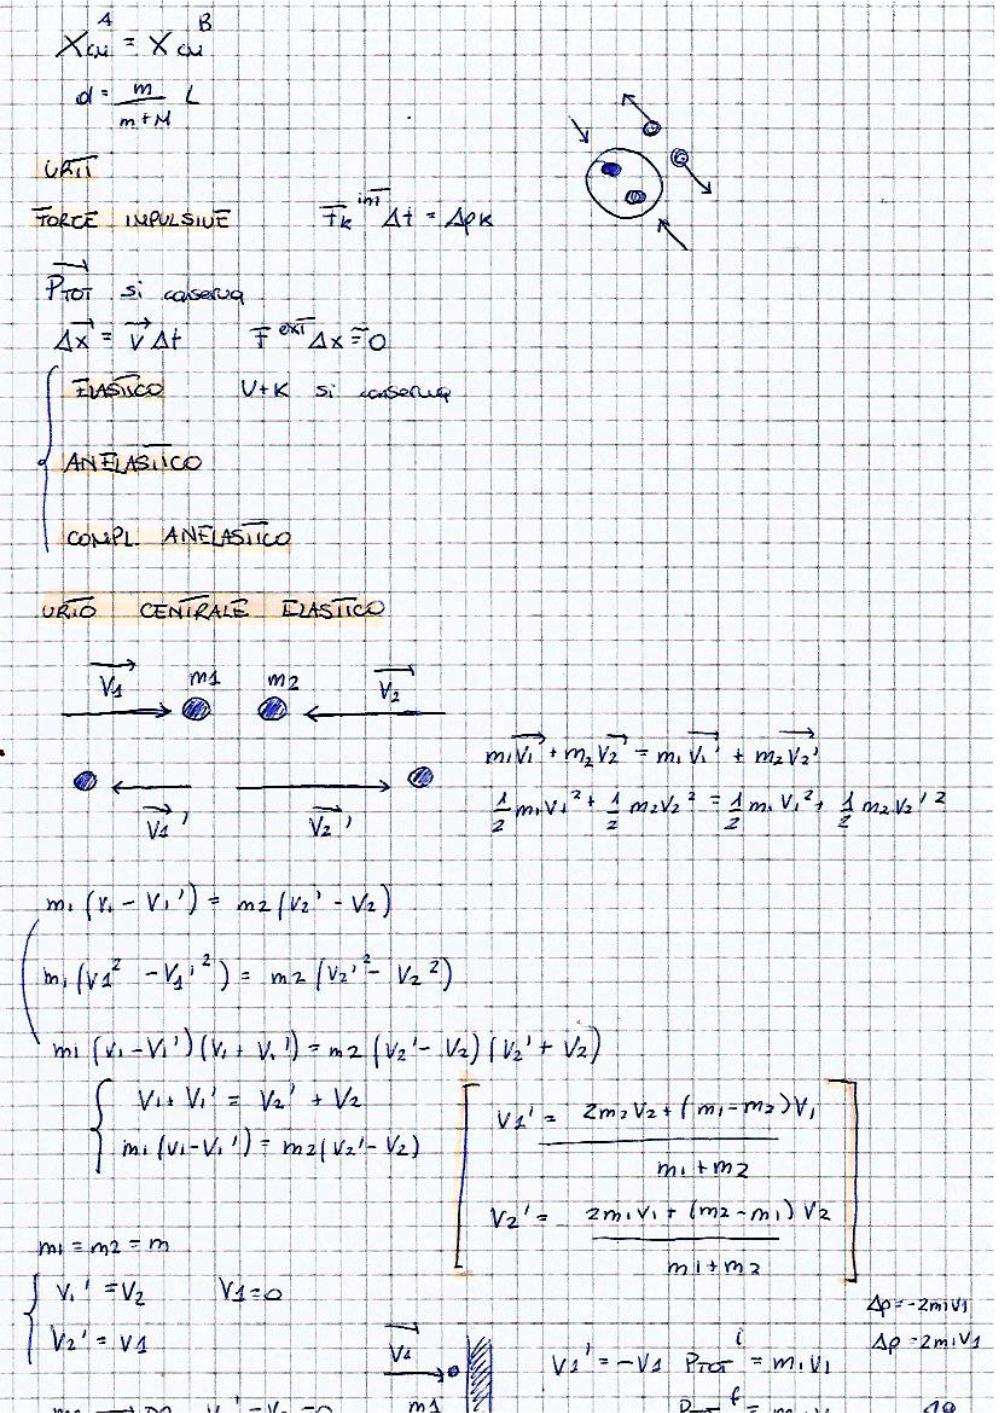 X_CM^A = X_CM^B
d = m/(m+M) L
URTI
FORCE IMPULSIVE F_k^int Δt = Δpk
P_TOT si conserva
Δx = v Δt F^ext Δx ≅ 0
ELASTICO U+K si conserva
ANELASTICO
COMPL. ANELASTICO
URTO CENTRALE ELASTICO
V1 m1 m2 V2
V1' V2'
m1V1 + m2V2 = m1V1' + m2V2'
1/2 m1V1² + 1/2 m2V2² = 1/2 m1V1² + 1/2 m2V2'²
m1(V1 - V1') = m2(V2' - V2)
m1(V1² - V1'²) = m2(V2'² - V2²)
m1(V1 - V1')(V1 + V1') = m2(V2' - V2)(V2' + V2)
V1 + V1' = V2' + V2
m1(V1 - V1') = m2(V2' - V2)
V1' = 2m2V2 + (m1 - m2)V1
m1 + m2
V2' = 2m1V1 + (m2 - m1)V2
m1 + m2
m1 = m2 = m
V1' = V2 V1 = 0
V2' = V1
Δp = -2m1V1
Δp = 2m1V1
V1
V1' = -V1 P_TOT^i = m1V1
m1
19